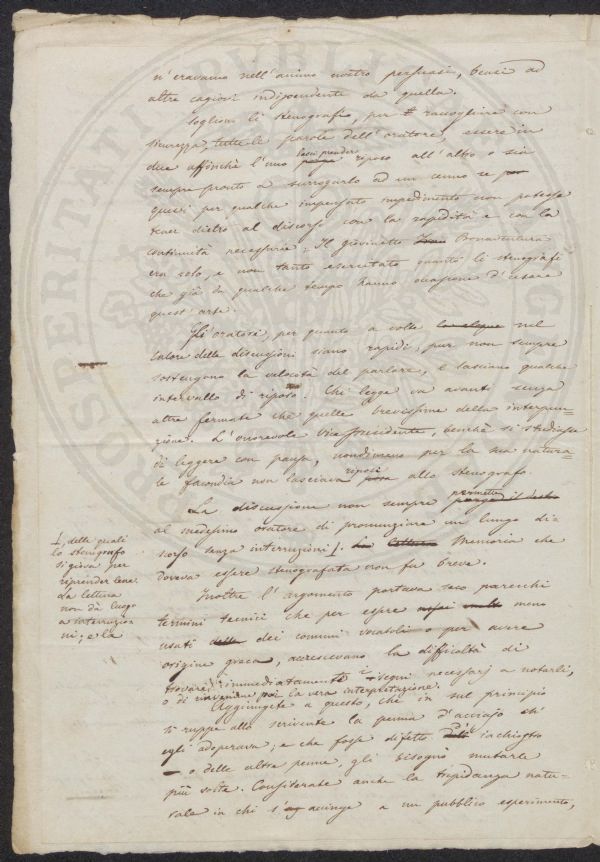 n'eravamo nell'animo nostro persuasi, bensì ad
altre cagioni indipendente da quella.
Sogliono li stenografi, per raccogliere con
sicurezza tutte le parole dell'oratore, essere in
due affinchè l'uno lasci prendere riposo all'altro o sia
sempre pronto a surrogarlo ad un cenno se
questi per qualche impensato impedimento non potesse
tener dietro al discorso con la rapidità e con la
continuità necessarie. Il giovinetto Bonaventura
era solo, e non tanto esercitato quanto li stenografi
che già da qualche tempo hanno occasione d'usare
quest'arte.
Gli oratori, per quanto a volte nel
calore delle discussioni siano rapidi, pur non sempre
sostengono la velocità del parlare, e lasciano qualche
intervallo di riposo. Chi legge va avanti senza
altre fermate che quelle brevissime della interpun=
zione. L'onorevole Vice Presidente, benchè si studiasse
di leggere con pausa, nondimeno per la sua natura=
le facondia non lasciava riposi allo stenografo.
La discussione non sempre permette
al medesimo oratore di pronunziare un lungo dis
corso senza interruzioni. Memoria che
doveva essere stenografata non fu breve.
Inoltre l'argomento portava seco parecchi
termini tecnici che per essere meno
usati dei comuni vocaboli o per avere
origine greca, accrescevano la difficoltà di
trovare immediatamente i segni necessarj a notarli,
o di rinvenirne poi la vera interpretazione.
Aggiungete a questo, che in sul principio
si ruppe allo scrivente la penna d'acciajo ch'
egli adoperava; e che fosse difetto d'inchiostro
o delle altre penne, gli bisognò mutarle
più volte. Considerate anche la trepidanza natu-
rale in chi s'accinge a un pubblico esperimento,
delle quali
lo stenografo
si giova per
riprender lena.
La lettura
non dà luogo
a interruzio
ni; e la